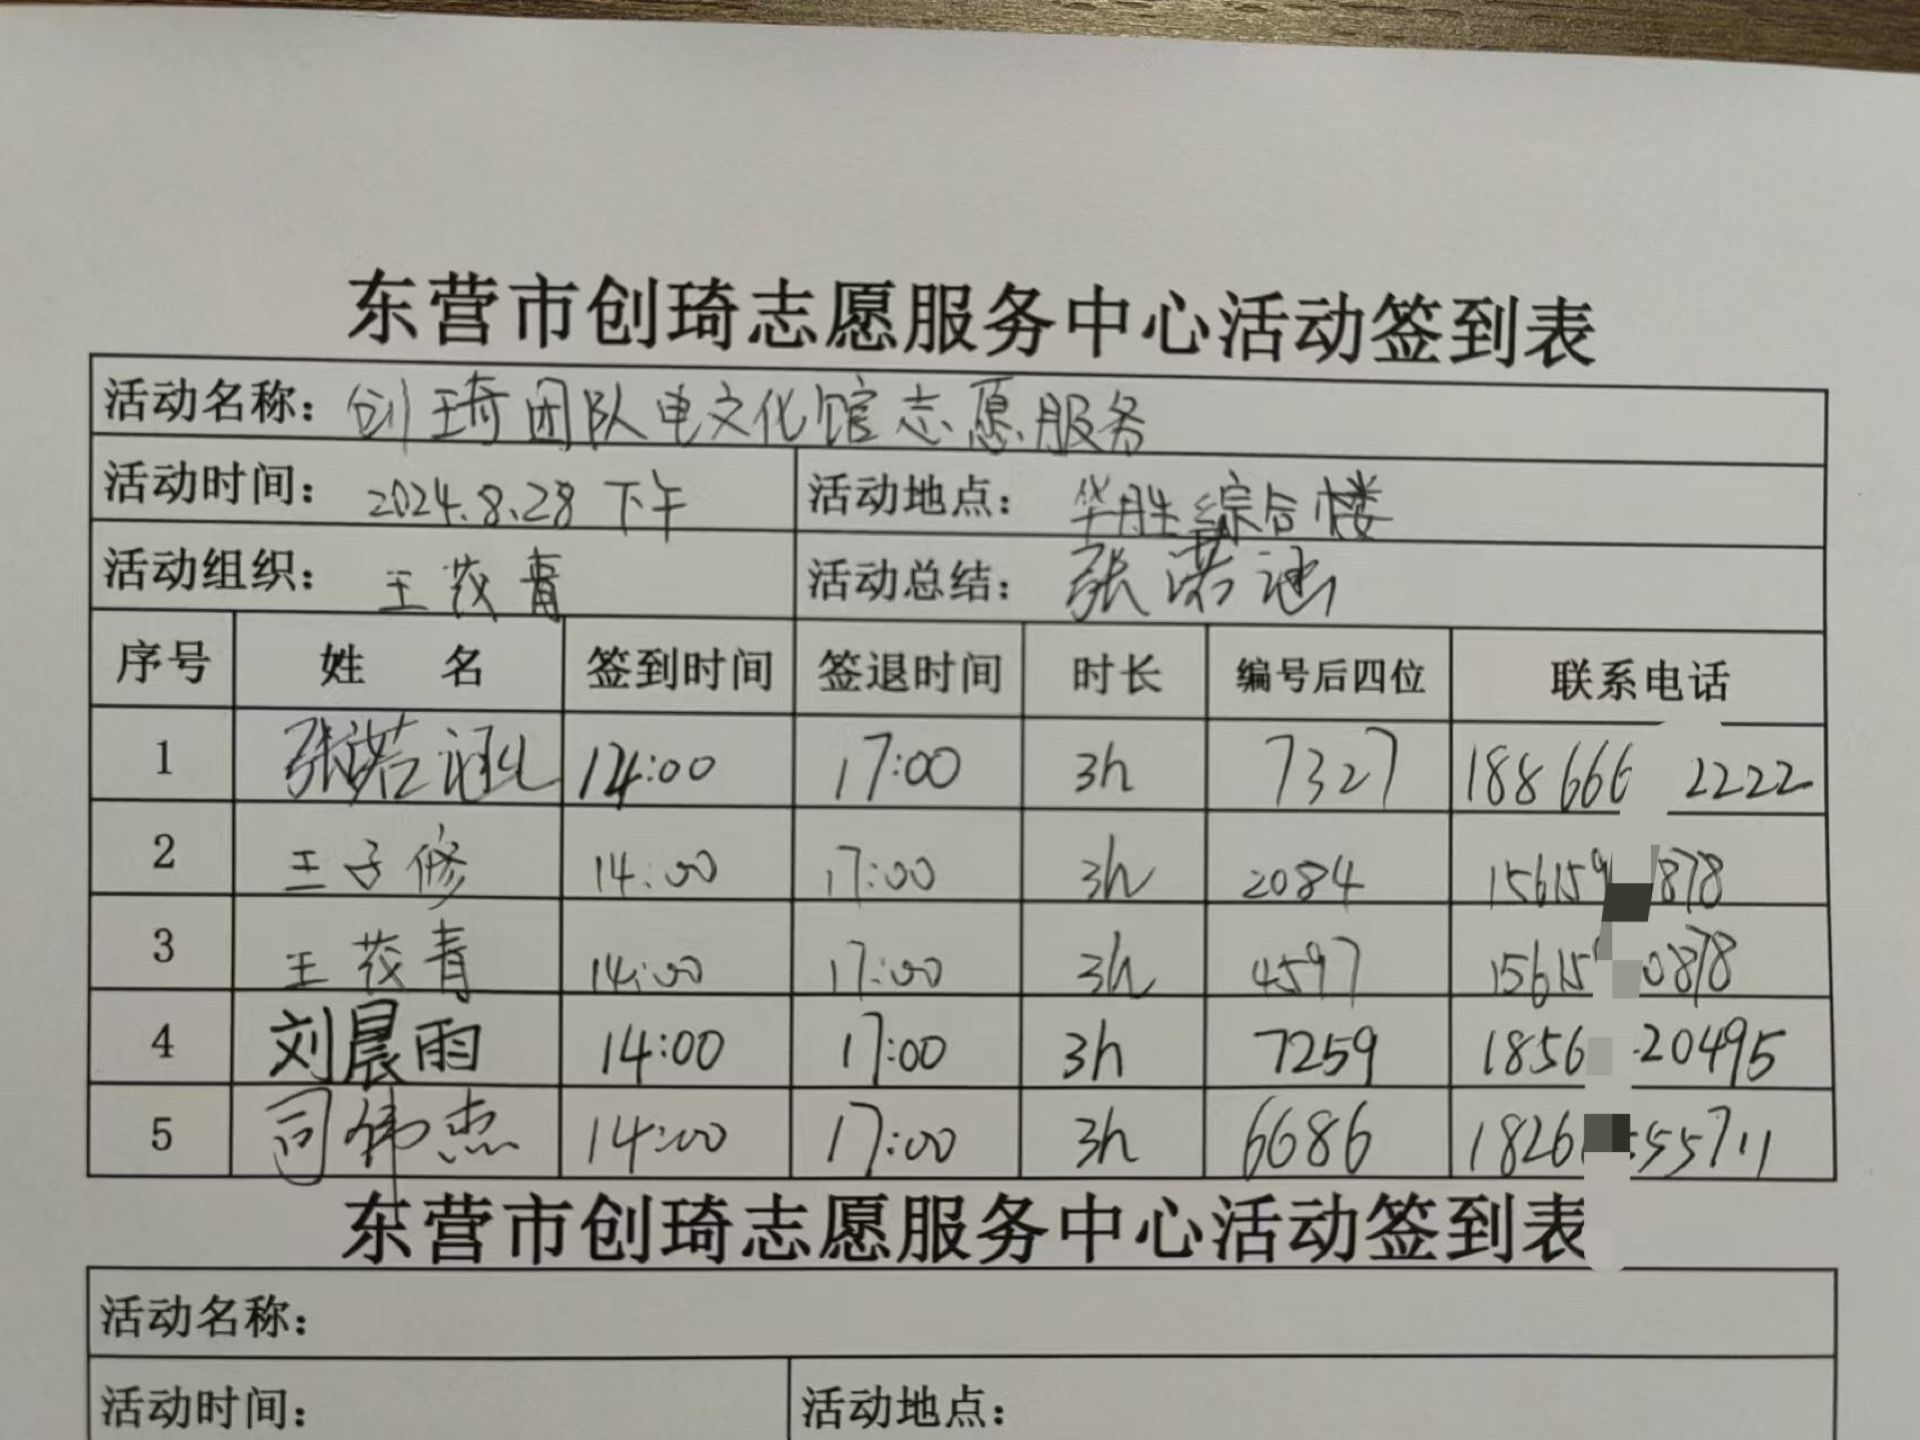 东营市创琦志愿服务中心活动签到表
活动名称：创琦团队电文化馆志愿服务
活动时间：2024.8.28 下午 活动地点：华胜综合楼
活动组织：王茂青 活动总结：张诺涵
序号 姓 名 签到时间 签退时间 时长 编号后四位 联系电话
1 张诺涵 14:00 17:00 3h 7327 188666 2222
2 王子修 14:00 17:00 3h 2084 156159 878
3 王茂青 14:00 17:00 3h 4597 15615 0878
4 刘晨雨 14:00 17:00 3h 7259 1856 20495
5 司伟杰 14:00 17:00 3h 6686 1826 55711
东营市创琦志愿服务中心活动签到表
活动名称：
活动时间： 活动地点：